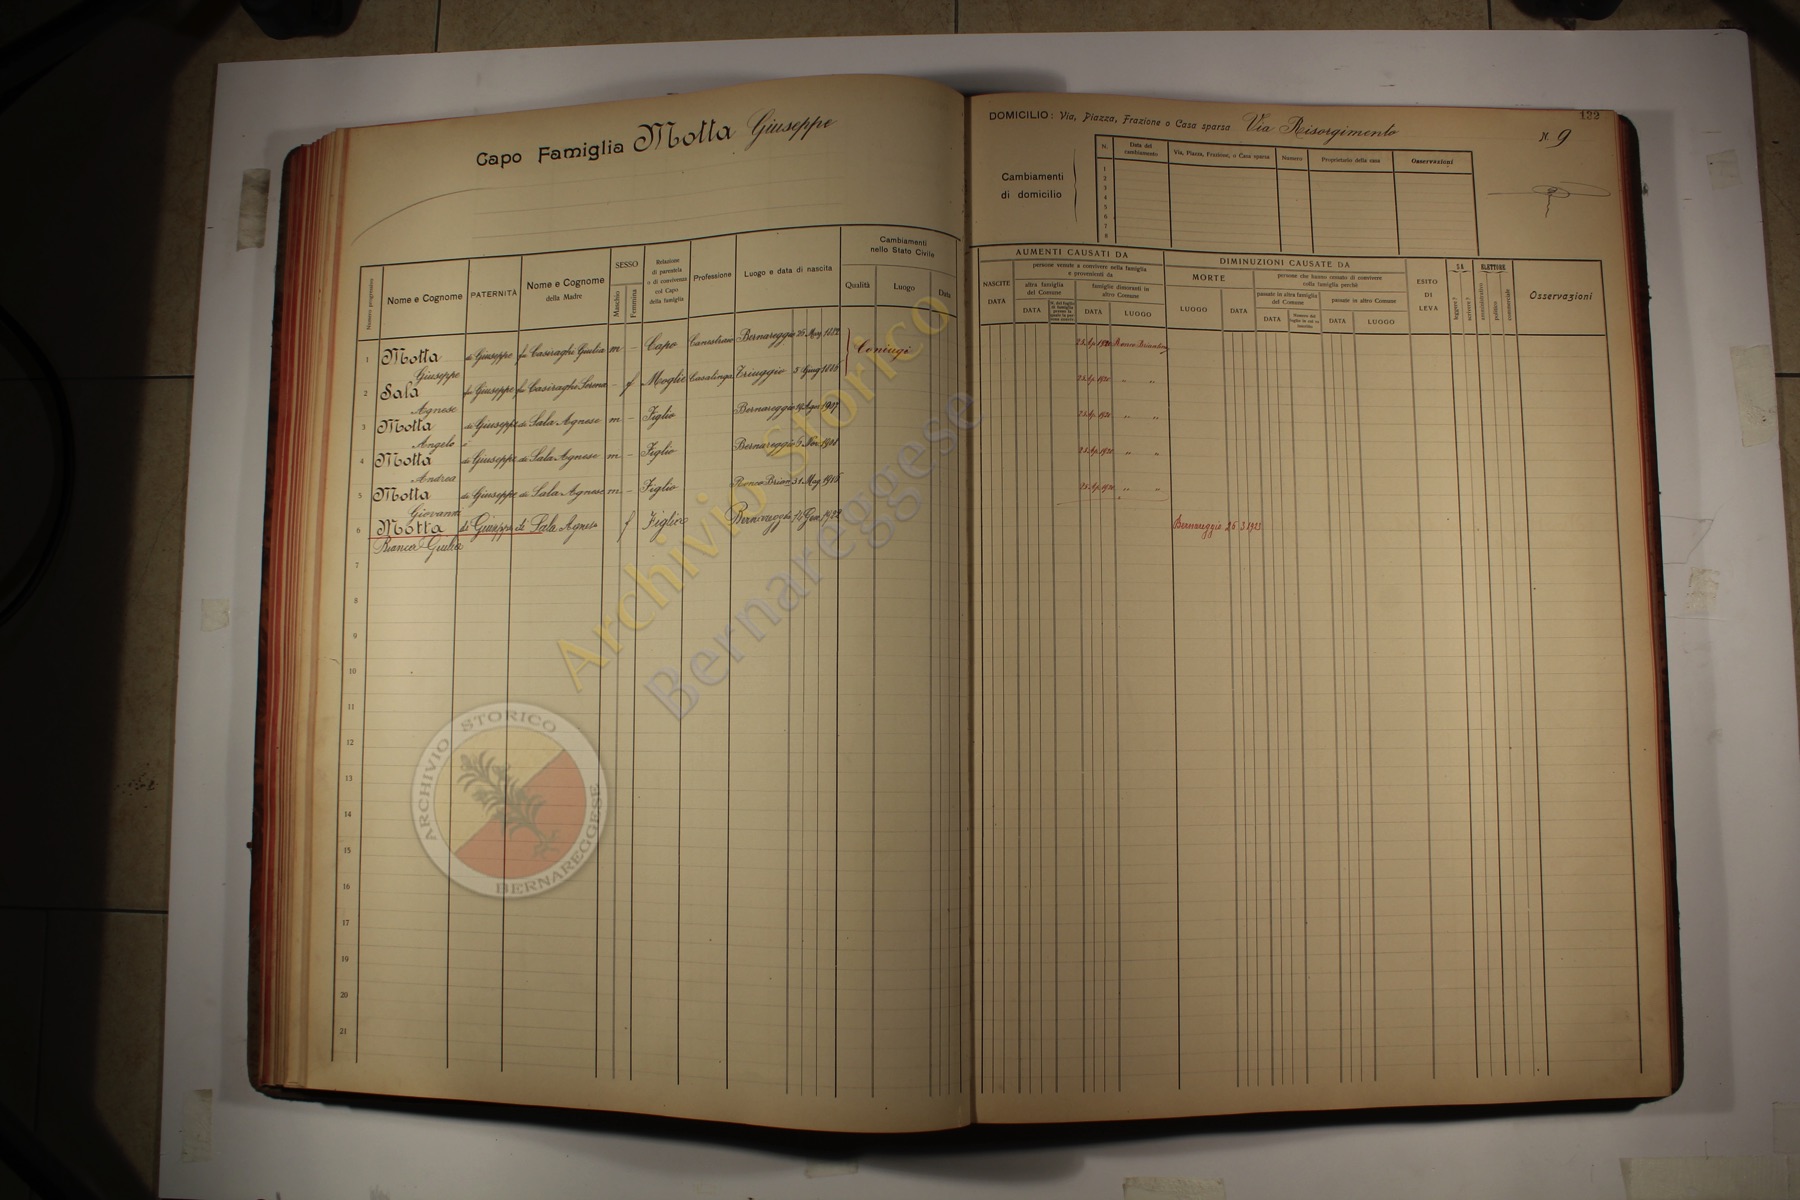 Capo Famiglia Motta Giuseppe
Numero progressivo
Nome e Cognome
PATERNITÀ
Nome e Cognome
della Madre
SESSO
Maschio
Femmina
Relazione
di parentela
o di convivenza
col Capo
della famiglia
Professione
Luogo e data di nascita
Cambiamenti
nello Stato Civile
Qualità
Luogo
Data
1 Motta di Giuseppe fu Casiraghi Giulia m - Capo Bernareggio 26 Mag. 1882
Giuseppe
Coniugi
2 Sala fu Giuseppe fu Casiraghi - f Moglie Casalinga Triuggio 5 Giug 1886
Agnese
3 Motta di Giuseppe di Sala Agnese m - Figlio Bernareggio 1907
Angelo
4 Motta di Giuseppe di Sala Agnese m - Figlio Bernareggio 1908
Andrea
5 Motta di Giuseppe di Sala Agnese m - Figlio Ronco Brian. 31 Mag. 1915
Giovanni
6 Motta di Giuseppe di Sala Agnese f Figlia Bernareggio 14 Gen. 1922
Bianca Giulia
7
8
9
10
11
12
13
14
15
16
17
18
19
20
21
132
DOMICILIO: Via, Piazza, Frazione o Casa sparsa Via Risorgimento
N. 9
Cambiamenti
di domicilio
N.
Data del
cambiamento
Via, Piazza, Frazione, o Casa sparsa
Numero
Proprietario della casa
Osservazioni
1
2
3
4
5
6
7
8
AUMENTI CAUSATI DA
NASCITE
DATA
persone venute a convivere nella famiglia
e provenienti da
altra famiglia
del Comune
DATA
famiglie dimoranti in
altro Comune
DATA
LUOGO
DIMINUZIONI CAUSATE DA
MORTE
LUOGO
DATA
persone che hanno cessato di convivere
colla famiglia perchè
passate in altra famiglia
del Comune
DATA
passate in altro Comune
DATA
LUOGO
ESITO
DI
LEVA
SA
leggere?
scrivere?
ELETTORE
amministrativo
politico
commerciale
Osservazioni
23 Ap. 1920 Ronco Briantino
23 Ap. 1920 " "
23 Ap. 1920 " "
23 Ap. 1920 " "
23 Ap. 1920 " "
Bernareggio 26 3 1923
Archivio Storico
Bernareggese
ARCHIVIO STORICO
BERNAREGGESE